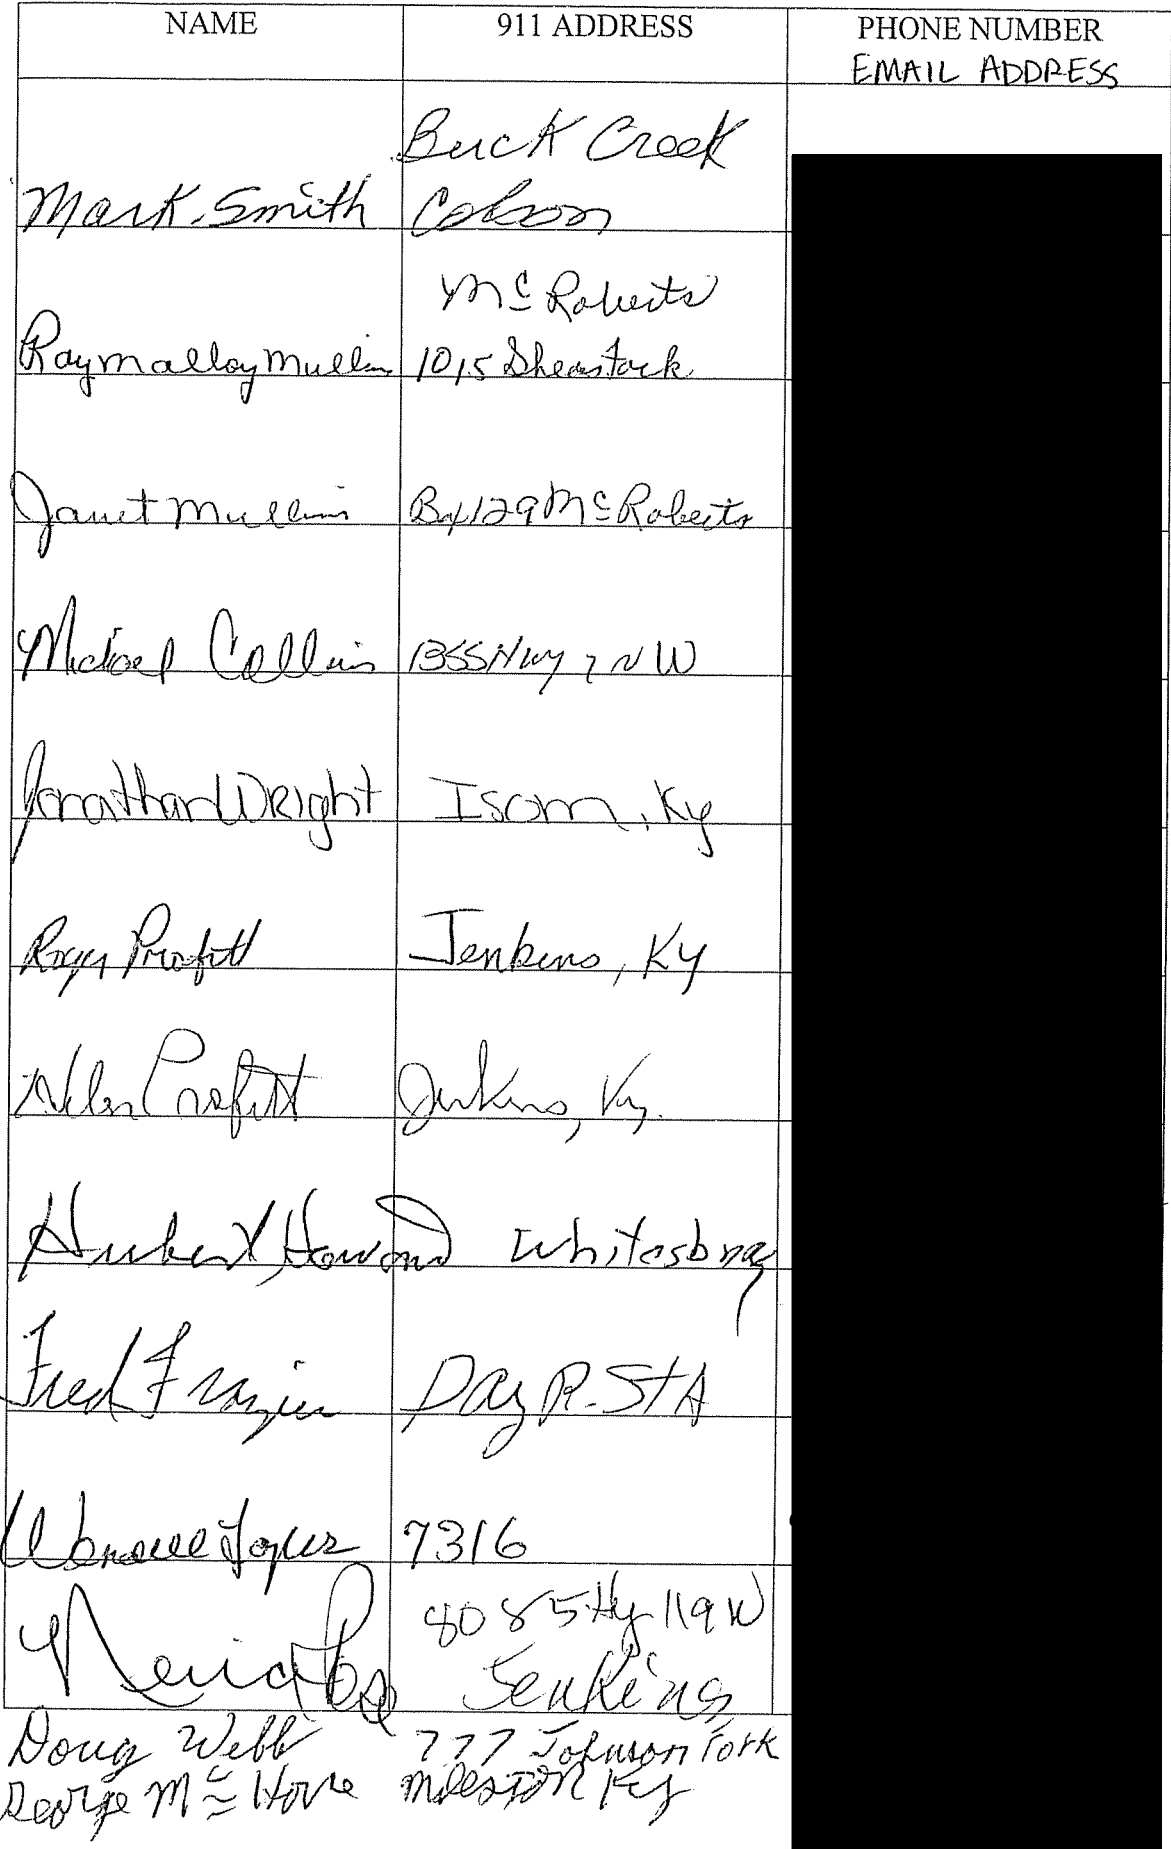 NAME 911 ADDRESS PHONE NUMBER
EMAIL ADDRESS
Buck Creek
Mark Smith Colson
McRoberts
Ray Malloy Mullins 1015 Sheas Fork
Janet Mullins Bx 129 McRoberts
Michael Collins 1355 Hwy 7 N W
Jonathan Wright Isom, Ky
Roger Profitt Jenkins, Ky
Helen Profitt Jenkins, Ky.
Hubert Howard Whitesburg
Fred Frazier Day R. STA
7316
8085 Hy 119 W
Jenkins
Doug Webb 777 Johnson Fork
George Mc